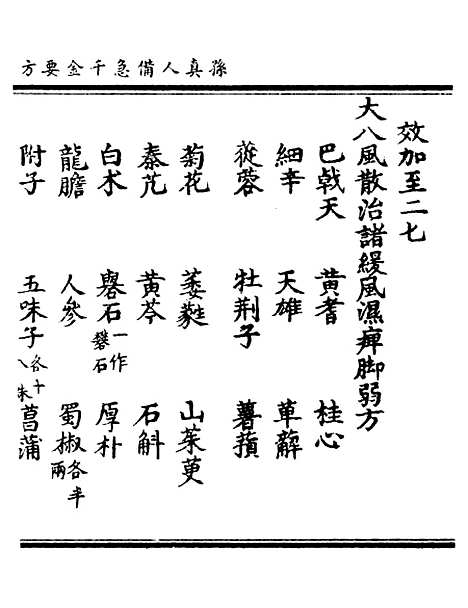 孫真人備急千金要方
效加至二七
大八風散治諸緩風濕痺脚弱方
巴戟天 黃耆 桂心
細辛 天雄 萆薢
蓯蓉 牡荆子 薯蕷
菊花 萎蕤 山茱萸
秦艽 黃芩 石斛
白朮 礜石一作礬石 厚朴
龍膽 人參 蜀椒各半兩
附子 五味子各十八朱 菖蒲